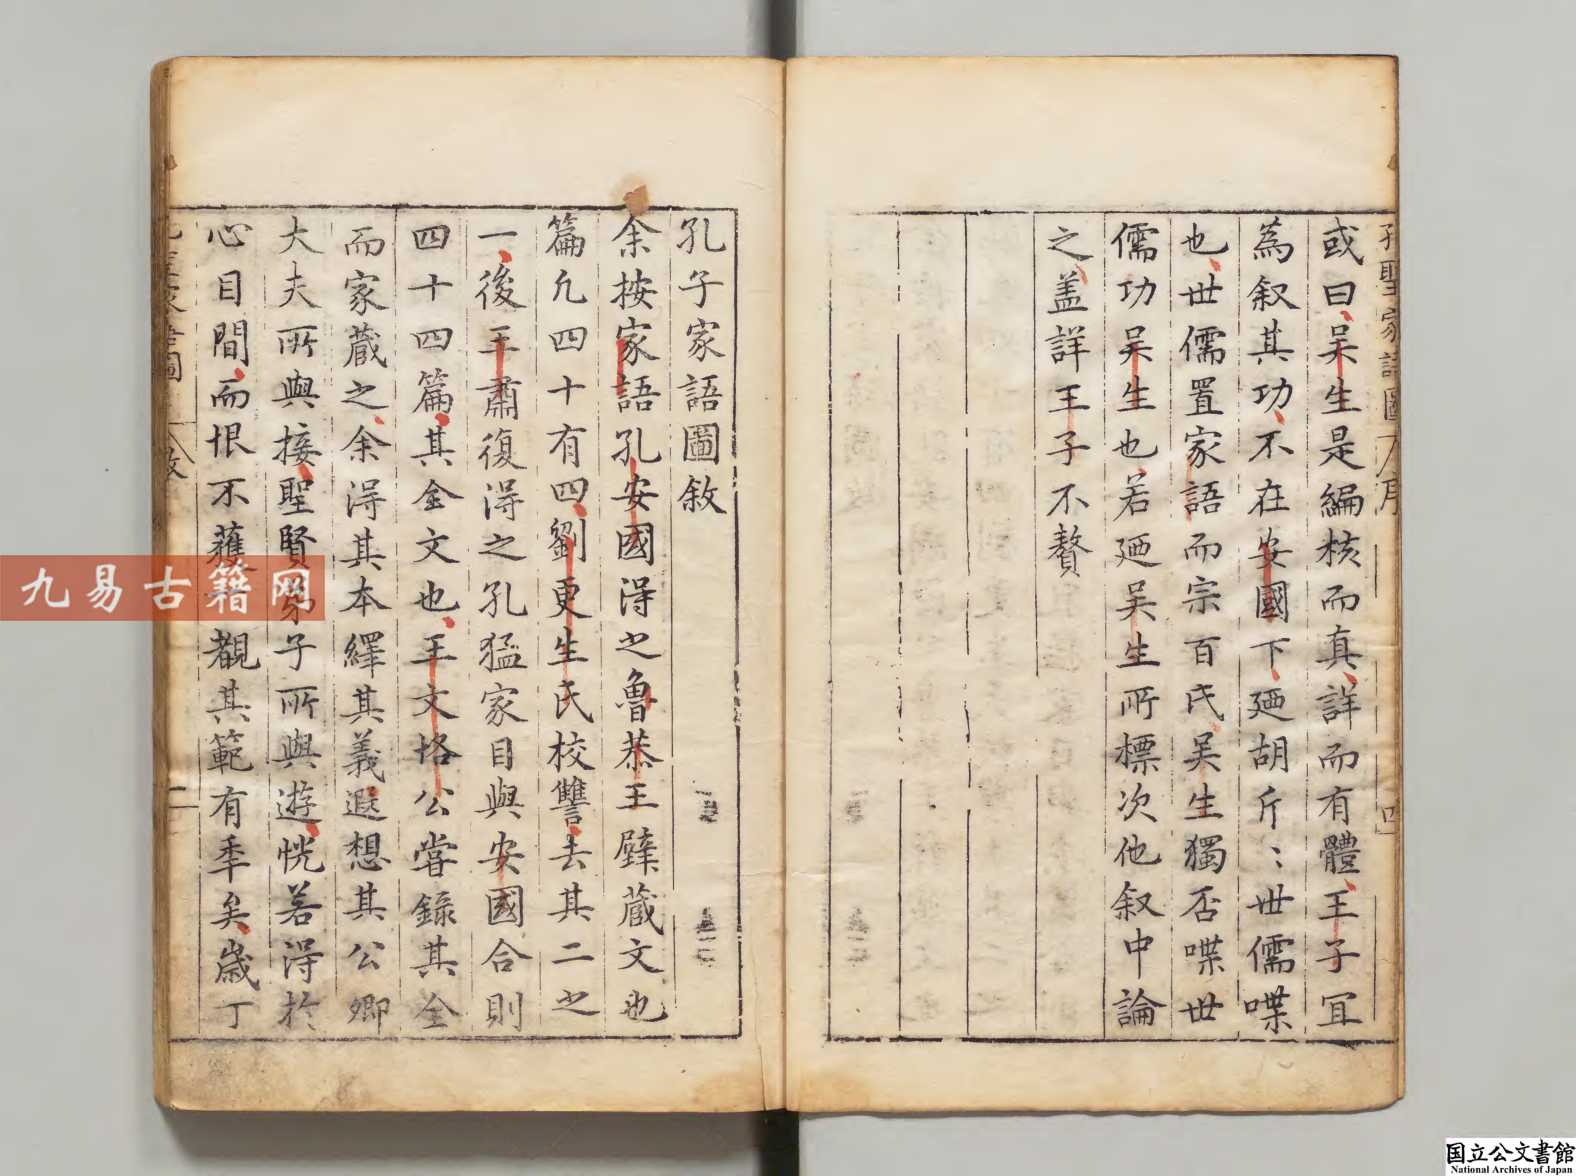 孔聖家語圖 序 四
或曰吴生是編核而真詳而有體王子冝
為叙其功不在安國下廼胡斤〻世儒喋
也世儒置家語而宗百氏吴生獨否喋世
儒功吴生也若廼吴生所標次他叙中論
之盖詳王子不贅
孔子家語圖敘
余按家語孔安國淂之魯恭王壁藏文也
篇凢四十有四劉更生氏校讐去其二之
一後王肅復淂之孔猛家目與安國合則
四十四篇其全文也王文恪公嘗録其全
而家藏之余淂其本繹其義遐想其公卿
大夫所與接聖賢弟子所與遊恍若淂於
心目間而恨不獲覩其範有季矣歲丁
九易古籍网
国立公文書館
National Archives of Japan